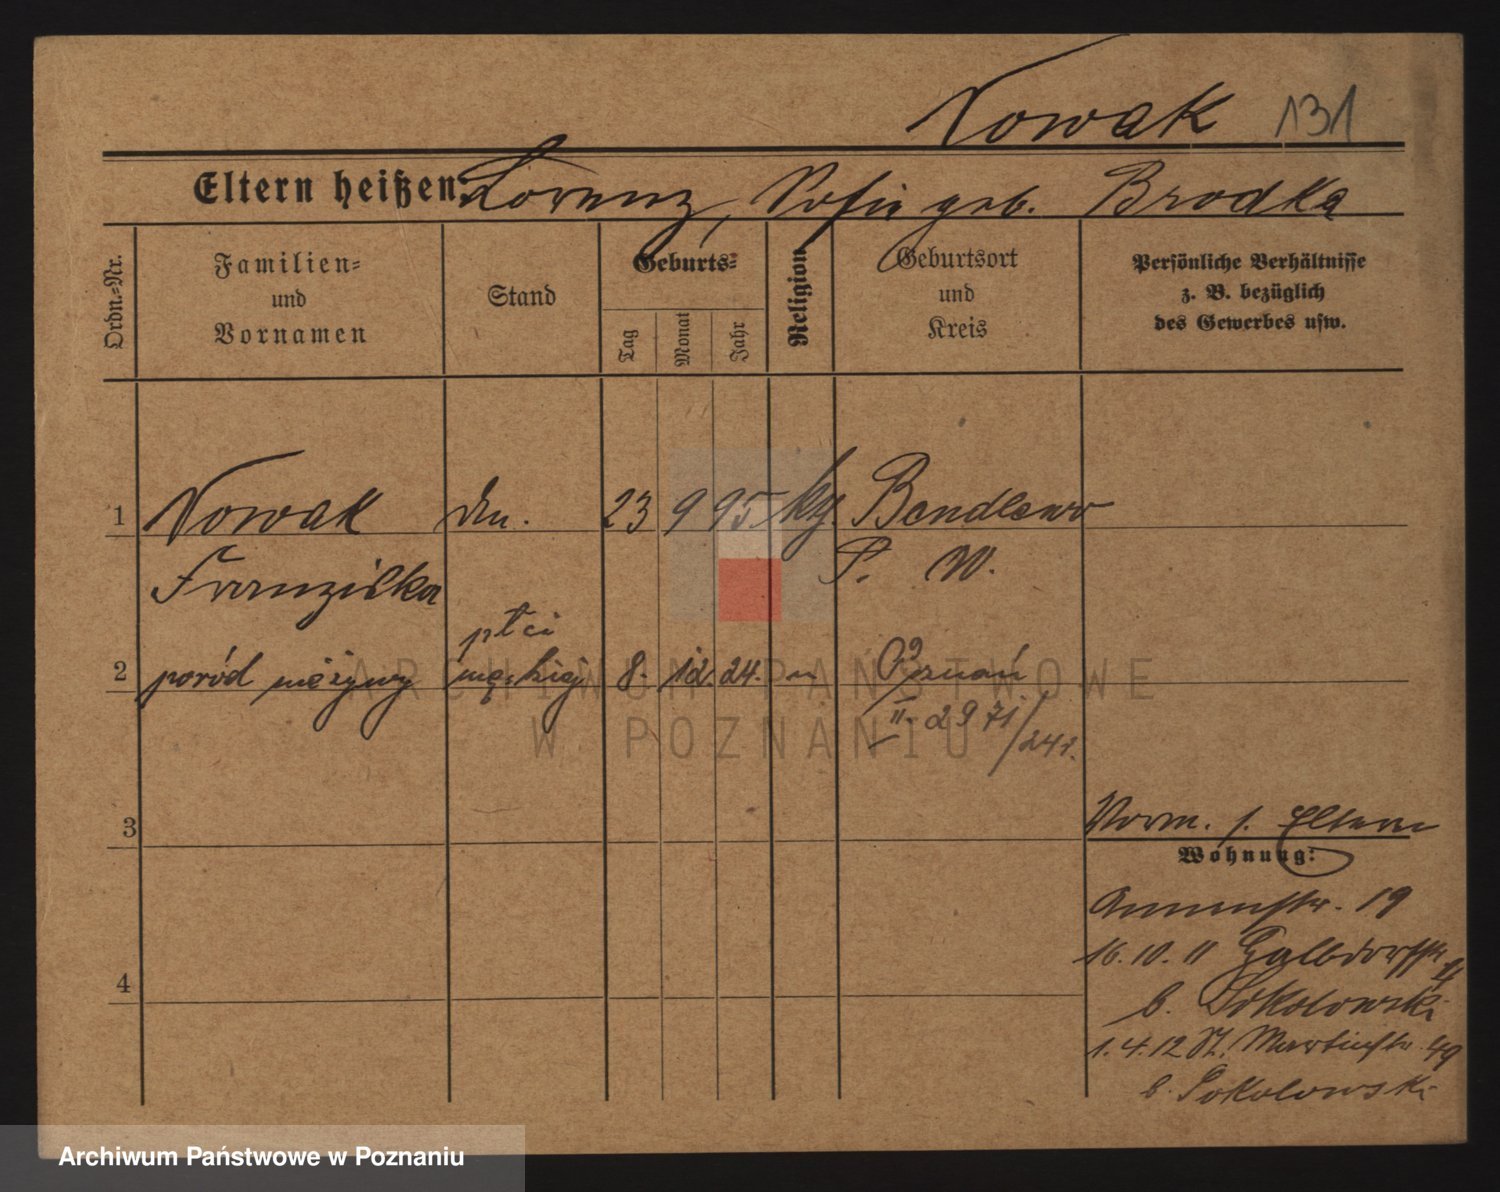 Nowak 131
Eltern heißen: Lorenz, Sofie geb. Brodka
Ordn.-Nr.
Familien-
und
Vornamen
Stand
Geburts-
Tag
Monat
Jahr
Religion
Geburtsort
und
Kreis
Persönliche Verhältnisse
z. B. bezüglich
des Gewerbes usw.
1 Nowak 23 9 95 Bendlewo
Franziska P. W.
płci
2 poród nieżywy męskiej 8. 12. 24. Poznań
II. 2971/24 r.
3
Vorm. s. Eltern
Wohnung:
Annenstr. 19
16. 10. 11
4
b. Sokolowski
1. 4. 12 St. Martinstr. 49
b. Sokolowski
ARCHIWUM PAŃSTWOWE
W POZNANIU
Archiwum Państwowe w Poznaniu